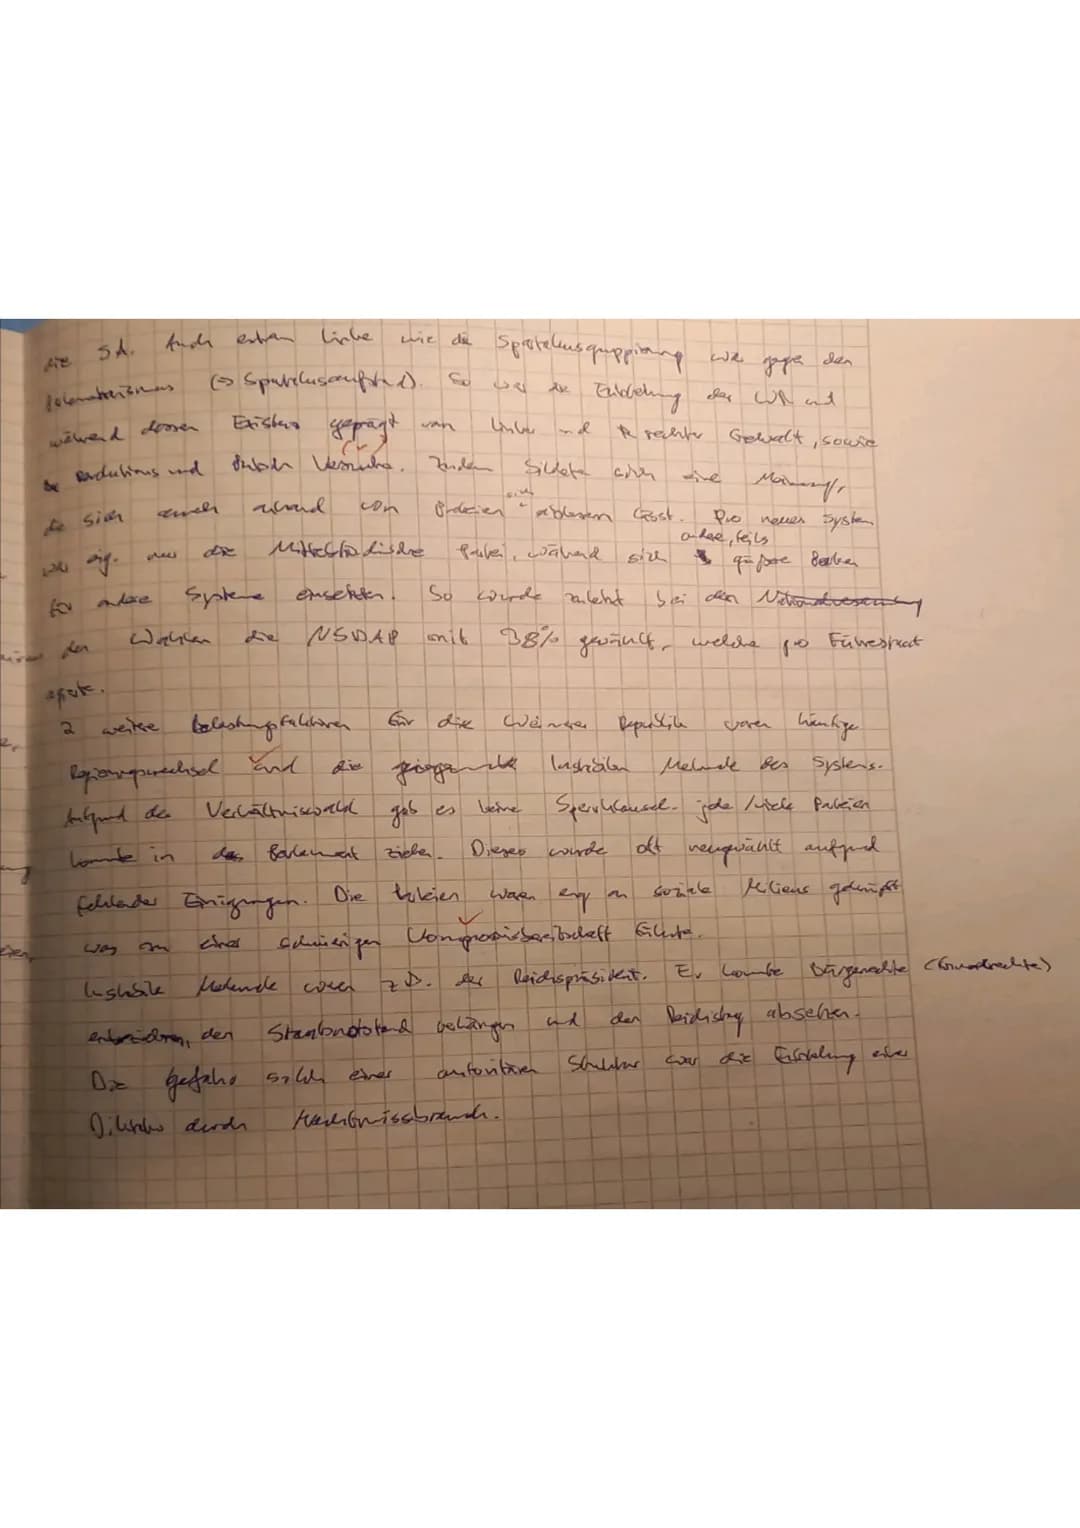 die SA. Auch extrem linke wie die Spartakusgruppierung war gegen den
(→ Spartakusaufstand). So war die Entstehung der WR und
während dessen Existenz geprägt von linker und rechter Gewalt, sowie
und Versuche. Zudem bildete sich eine Meinung,
die sich auch anhand von Parteien ablesen lässt. Pro neuen System
andere, teils
war eig. nur die Mittelständische Partei, während sich größere
für andere Systeme einsetzten. So wurde zuletzt bei den
den Wahlen die NSDAP mit 38% gewählt, welche pro Führerstaat
agierte.
2 weitere Belastungsfaktoren für die Weimarer Republik waren häufige
Regierungswechsel und die instabilen Merkmale des Systems.
Aufgrund des Verhältniswahl gab es keine Sperrklausel. jede / viele Parteien
konnte in das Parlament ziehen. Dieses wurde oft neugewählt aufgrund
fehlender Einigungen. Die Parteien waren eng an soziale Milieus geknüpft
was an einer schwierigen Kompromisbereitschaft führte.
Instabile Merkmale waren z.B. der Reichspräsident. Er konnte Bürgerrechte (Grundrechte)
den Staatsnotstand verhängen und den Reichstag absetzen.
Die Gefahr solch einer autoritären Struktur war die Entstehung einer
Diktatur durch Machtmissbrauch.